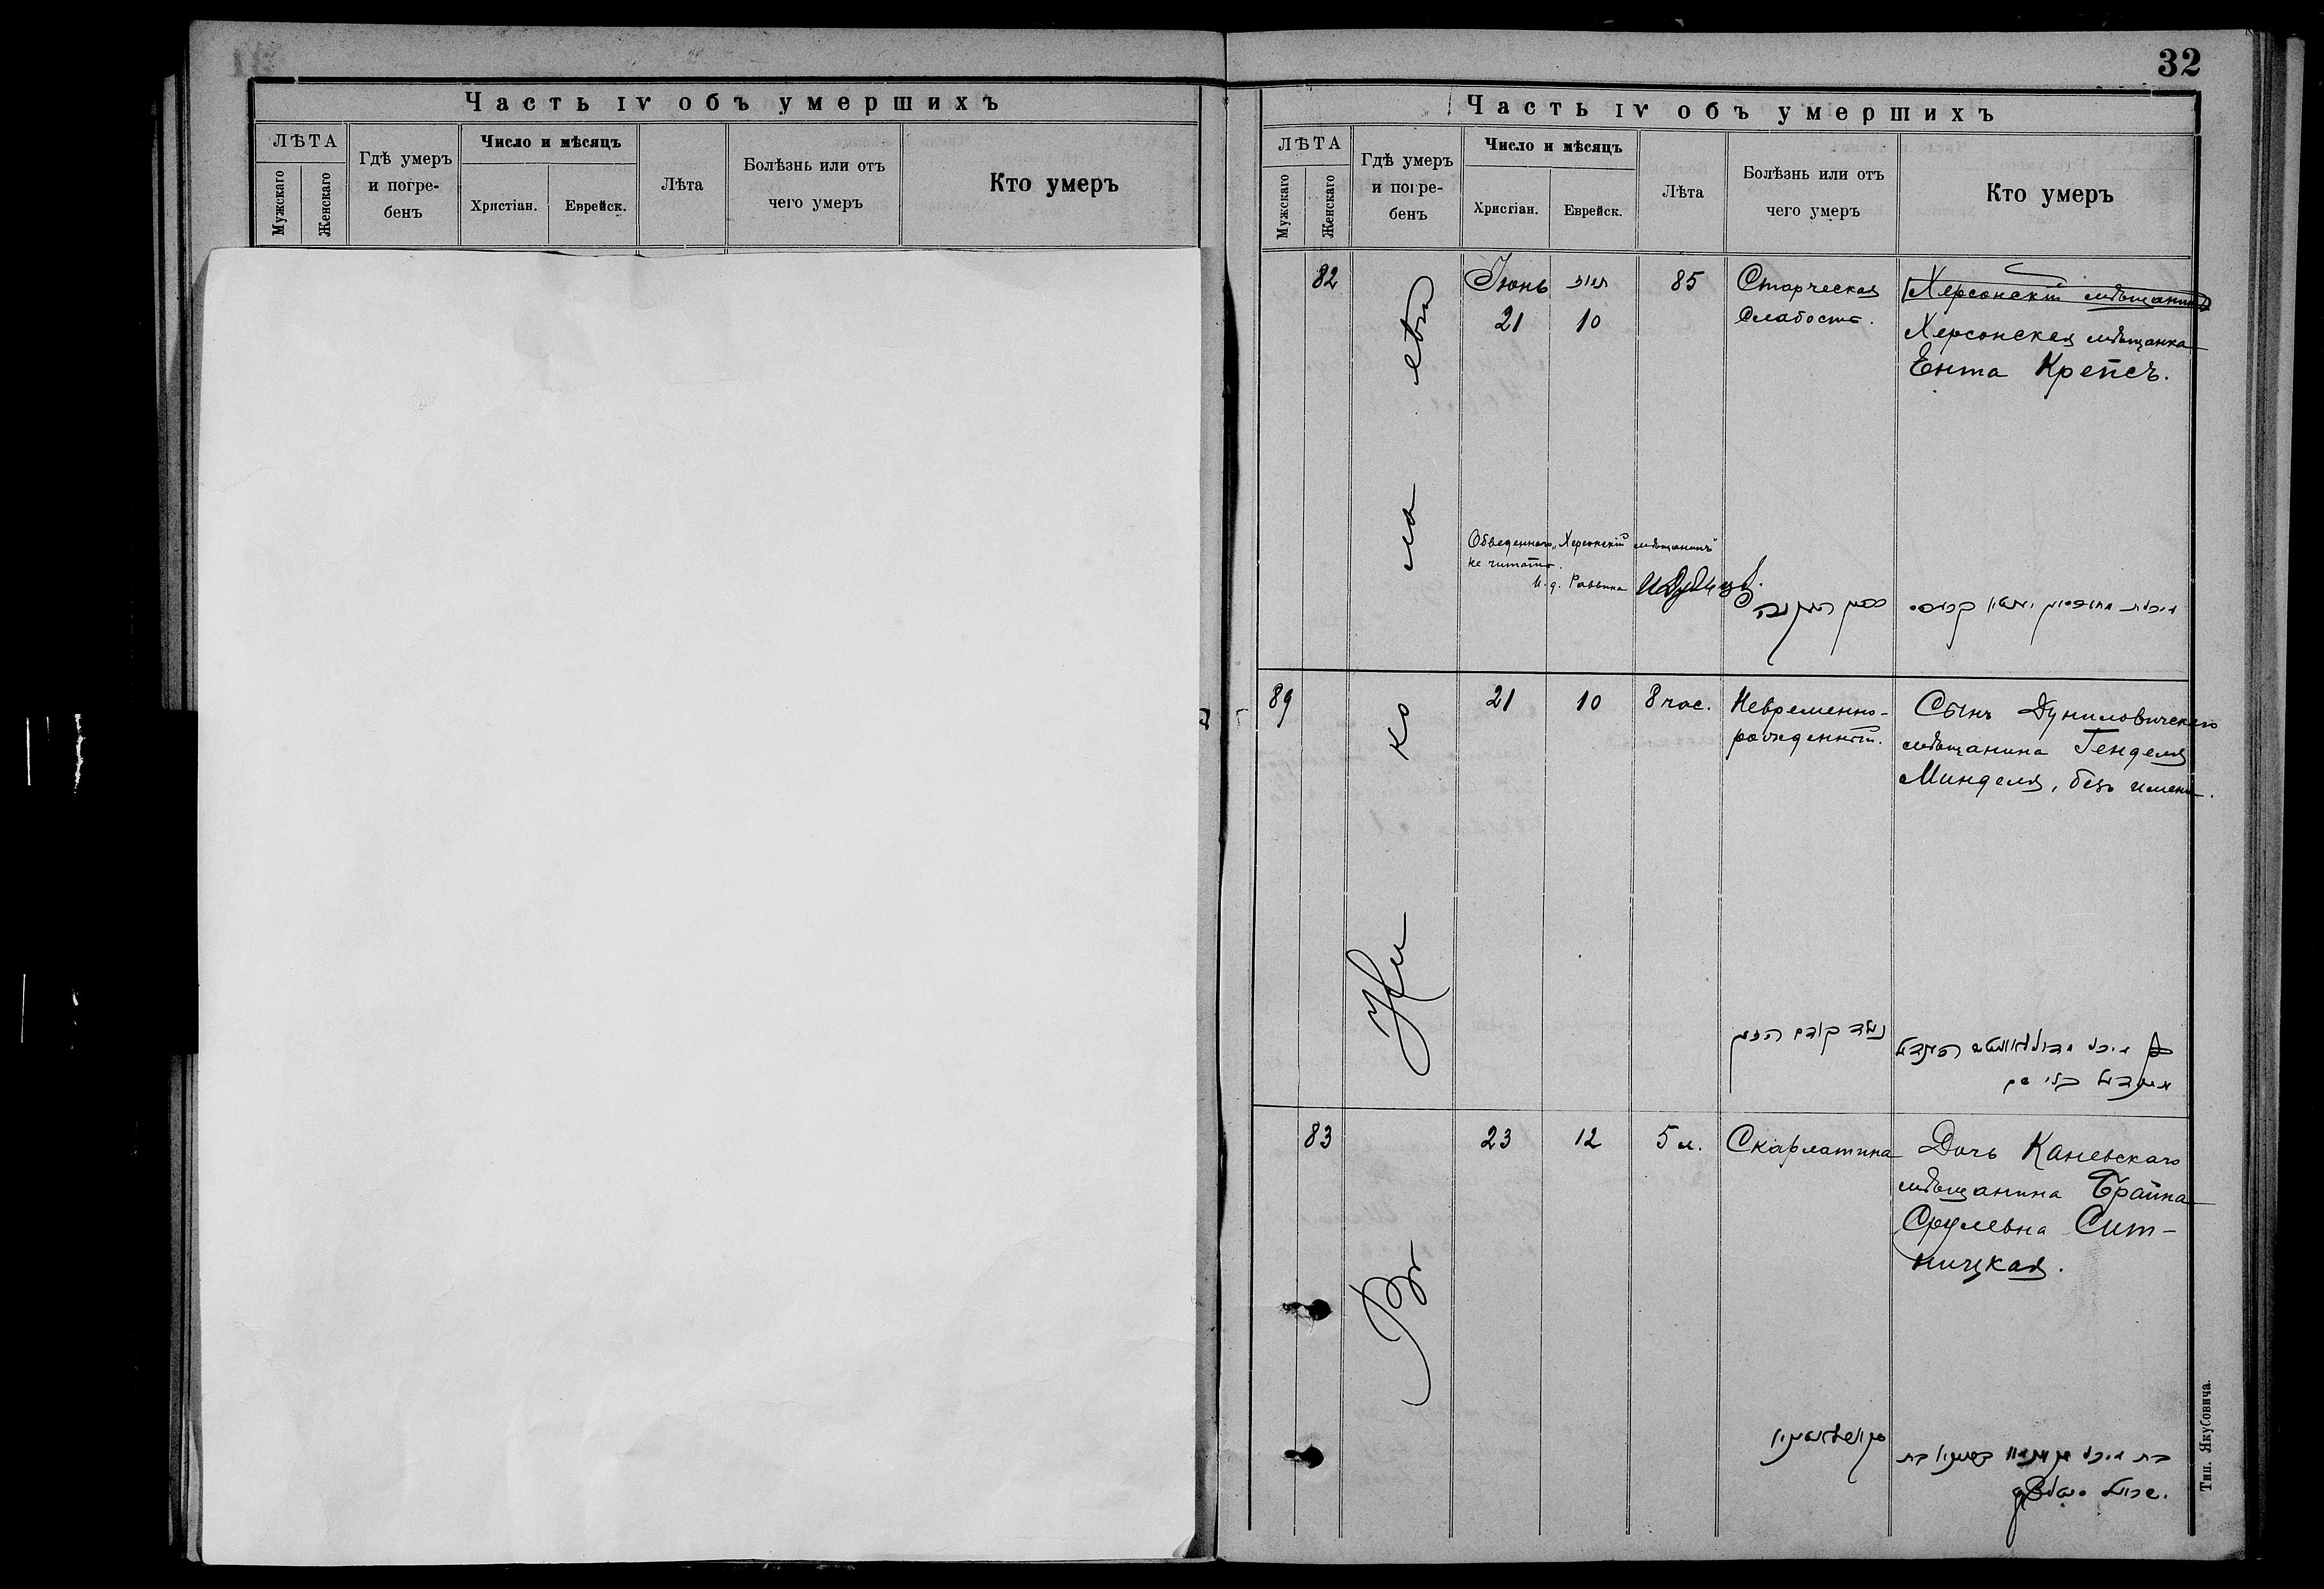 Часть IV объ умершихъ
ЛѢТА
Мужскаго
Женскаго
Гдѣ умеръ
и погре-
бенъ
Число и мѣсяцъ
Христіан.
Еврейск.
Лѣта
Болѣзнь или отъ
чего умеръ
Кто умеръ
32
Часть IV объ умершихъ
ЛѢТА
Мужскаго
Женскаго
Гдѣ умеръ
и погре-
бенъ
Число и мѣсяцъ
Христіан.
Еврейск.
Лѣта
Болѣзнь или отъ
чего умеръ
Кто умеръ
82
Іюнь
21
10
85
Старческая
Слабость.
Херсонскій мѣщанинъ
Херсонская мѣщанка
Ента Крейсъ.
Обведеннаго „Херсонскій мѣщанинъ"
не читать.
И. д. Раввина
89
21
10
8 час.
Невременно-
рожденный.
Сынъ Дуниловичскаго
мѣщанина Генделя
Минделя, безъ имени.
נולד קודם הזמן
83
23
12
5 л.
Скарлатина
Дочь Каневскаго
мѣщанина Брайна
Срулевна Сит-
ницкая.
Въ
Ни
ко
ла
евѣ
Тип. Якубовича.